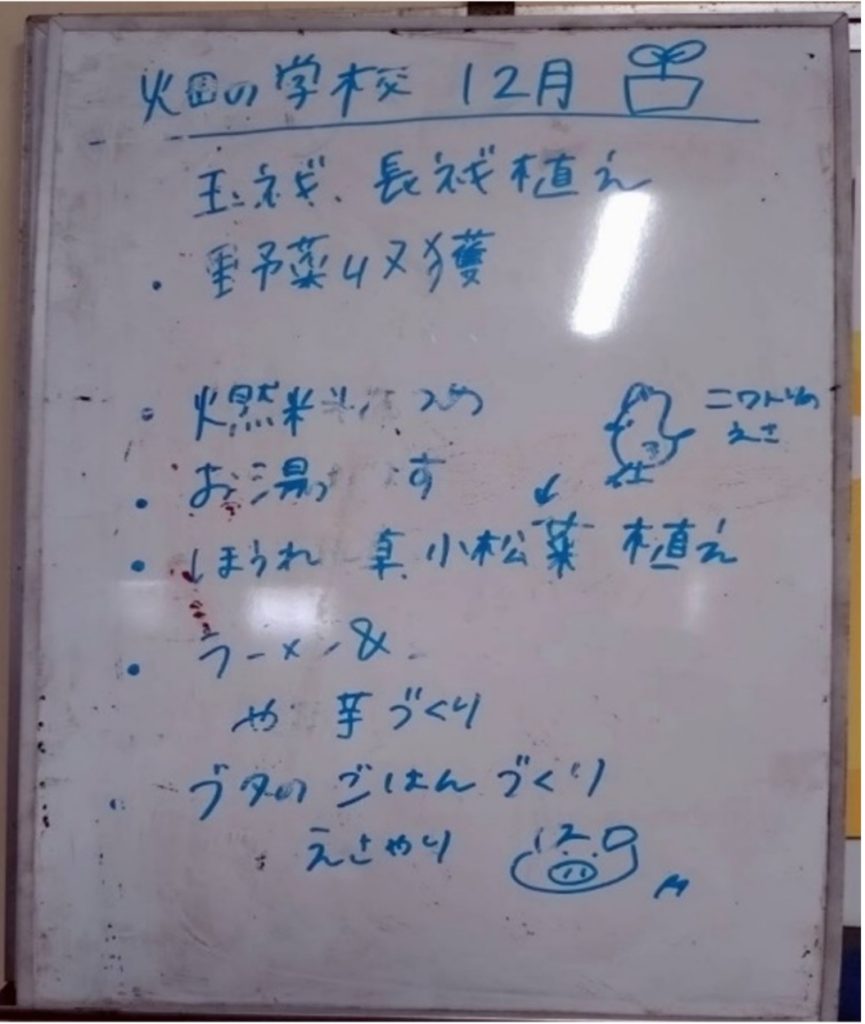 畑の学校 12月
玉ネギ、長ネギ植え
・野菜収穫
・燃料
ニワトリの
えさ
・お湯 す
・ほうれ 草 小松菜 植え
・ラーメン &
や 芋づくり
・ブタの ごはんづくり
えさやり